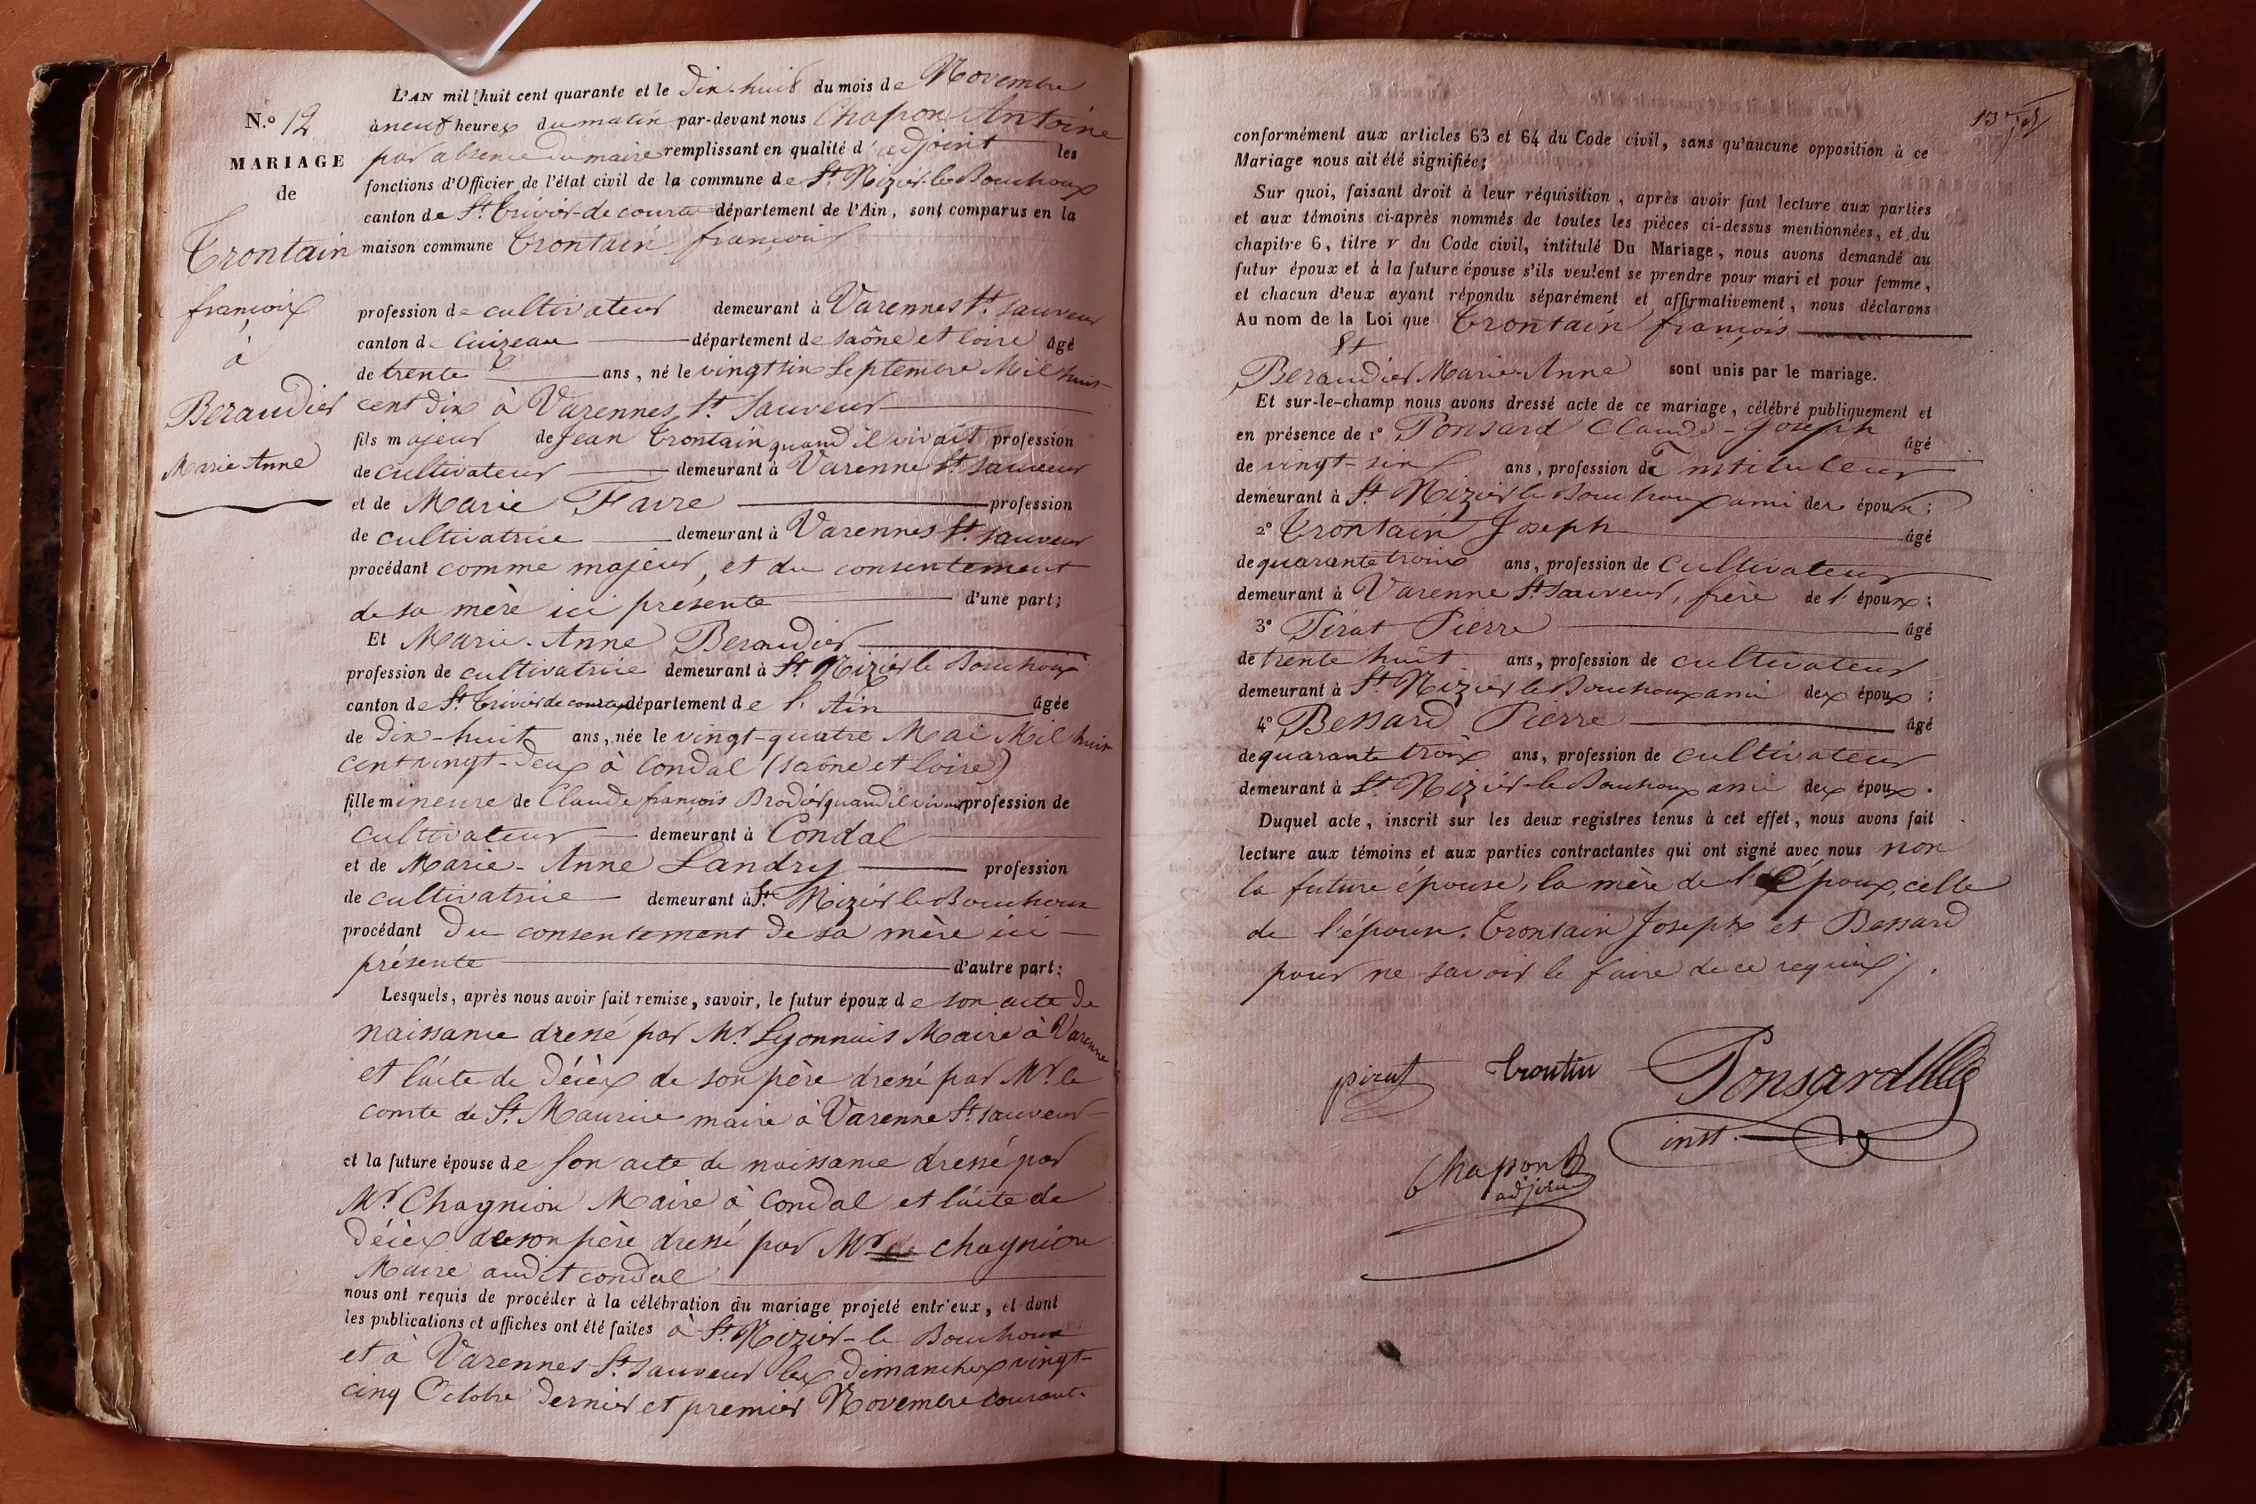 L'AN mil huit cent quarante et le dix-huit du mois de Novembre
N.º 12
à neuf heures du matin par-devant nous Chapon Antoine
MARIAGE
par absence du maire remplissant en qualité d'adjoint les
de
fonctions d'Officier de l'état civil de la commune de St. Nizier le Bouchoux
canton de St. Trivier de courtes département de l'Ain, sont comparus en la
Trontain
maison commune Trontain françois
françois
à
Beraudier
Marie Anne
profession de cultivateur demeurant à Varennes St. Sauveur
canton de Cuizeau département de saône et loire âgé
de trente ans, né le vingt six Septembre Mil huit
cent dix à Varennes St. Sauveur
fils majeur de Jean Trontain quand il vivait profession
de cultivateur demeurant à Varenne St. Sauveur
et de Marie Favre profession
de cultivatrice demeurant à Varennes St. Sauveur
procédant comme majeur, et du consentement
de sa mère ici presente d'une part;
Et Marie-Anne Beraudier
profession de cultivatrice demeurant à St. Nizier le Bouchoux
canton de St. Trivier de courtes département de l'Ain âgée
de dix-huit ans, née le vingt-quatre Mai Mil huit
cent vingt-deux à Condal (saône et loire)
fille mineure de Claude françois Brodier quand il vivait profession de
cultivateur demeurant à Condal
et de Marie-Anne Landry profession
de cultivatrice demeurant à St. Nizier le Bouchoux
procédant du consentement de sa mère ici
présente d'autre part;
Lesquels, après nous avoir fait remise, savoir, le futur époux de son acte de
naissance dressé par Mr. Lyonnais Maire à Varenne
et l'acte de décès de son père dressé par Mr. le
comte de St. Maurice maire à Varenne St. Sauveur
et la future épouse de son acte de naissance dressé par
Mr. Chagnion Maire à Condal et l'acte de
décès de son père dressé par Mr. Chagnion
Maire audit condal
nous ont requis de procéder à la célébration du mariage projeté entr'eux, et dont
les publications et affiches ont été faites à St. Nizier-le Bouchoux
et à Varennes St. Sauveur les dimanches vingt-
cinq Octobre dernier et premier Novembre courant
13
conformément aux articles 63 et 64 du Code civil, sans qu'aucune opposition à ce
Mariage nous ait été signifiée;
Sur quoi, faisant droit à leur réquisition, après avoir fait lecture aux parties
et aux témoins ci-après nommés de toutes les pièces ci-dessus mentionnées, et du
chapitre 6, titre v du Code civil, intitulé Du Mariage, nous avons demandé au
futur époux et à la future épouse s'ils veulent se prendre pour mari et pour femme,
et chacun d'eux ayant répondu séparément et affirmativement, nous déclarons
Au nom de la Loi que Trontain françois
Et
Beraudier Marie-Anne sont unis par le mariage.
Et sur-le-champ nous avons dressé acte de ce mariage, célébré publiquement et
en présence de 1º Ponsard Claude-Joseph âgé
de vingt-six ans, profession d'Instituteur
demeurant à St. Nizier le Bouchoux ami des époux;
2º Trontain Joseph âgé
de quarante trois ans, profession de cultivateur
demeurant à Varenne St. Sauveur, frère de l'époux;
3º Pirat Pierre âgé
de trente huit ans, profession de cultivateur
demeurant à St. Nizier le Bouchoux ami des époux;
4º Bessard Pierre âgé
de quarante trois ans, profession de cultivateur
demeurant à St. Nizier-le Bouchoux ami des époux.
Duquel acte, inscrit sur les deux registres tenus à cet effet, nous avons fait
lecture aux témoins et aux parties contractantes qui ont signé avec nous non
la future épouse, la mère de l'époux, celle
de l'épouse, Trontain Joseph et Bessard
pour ne savoir le faire de ce requis.
pirat Trontin Ponsard
inst.
Chapon
adjoint